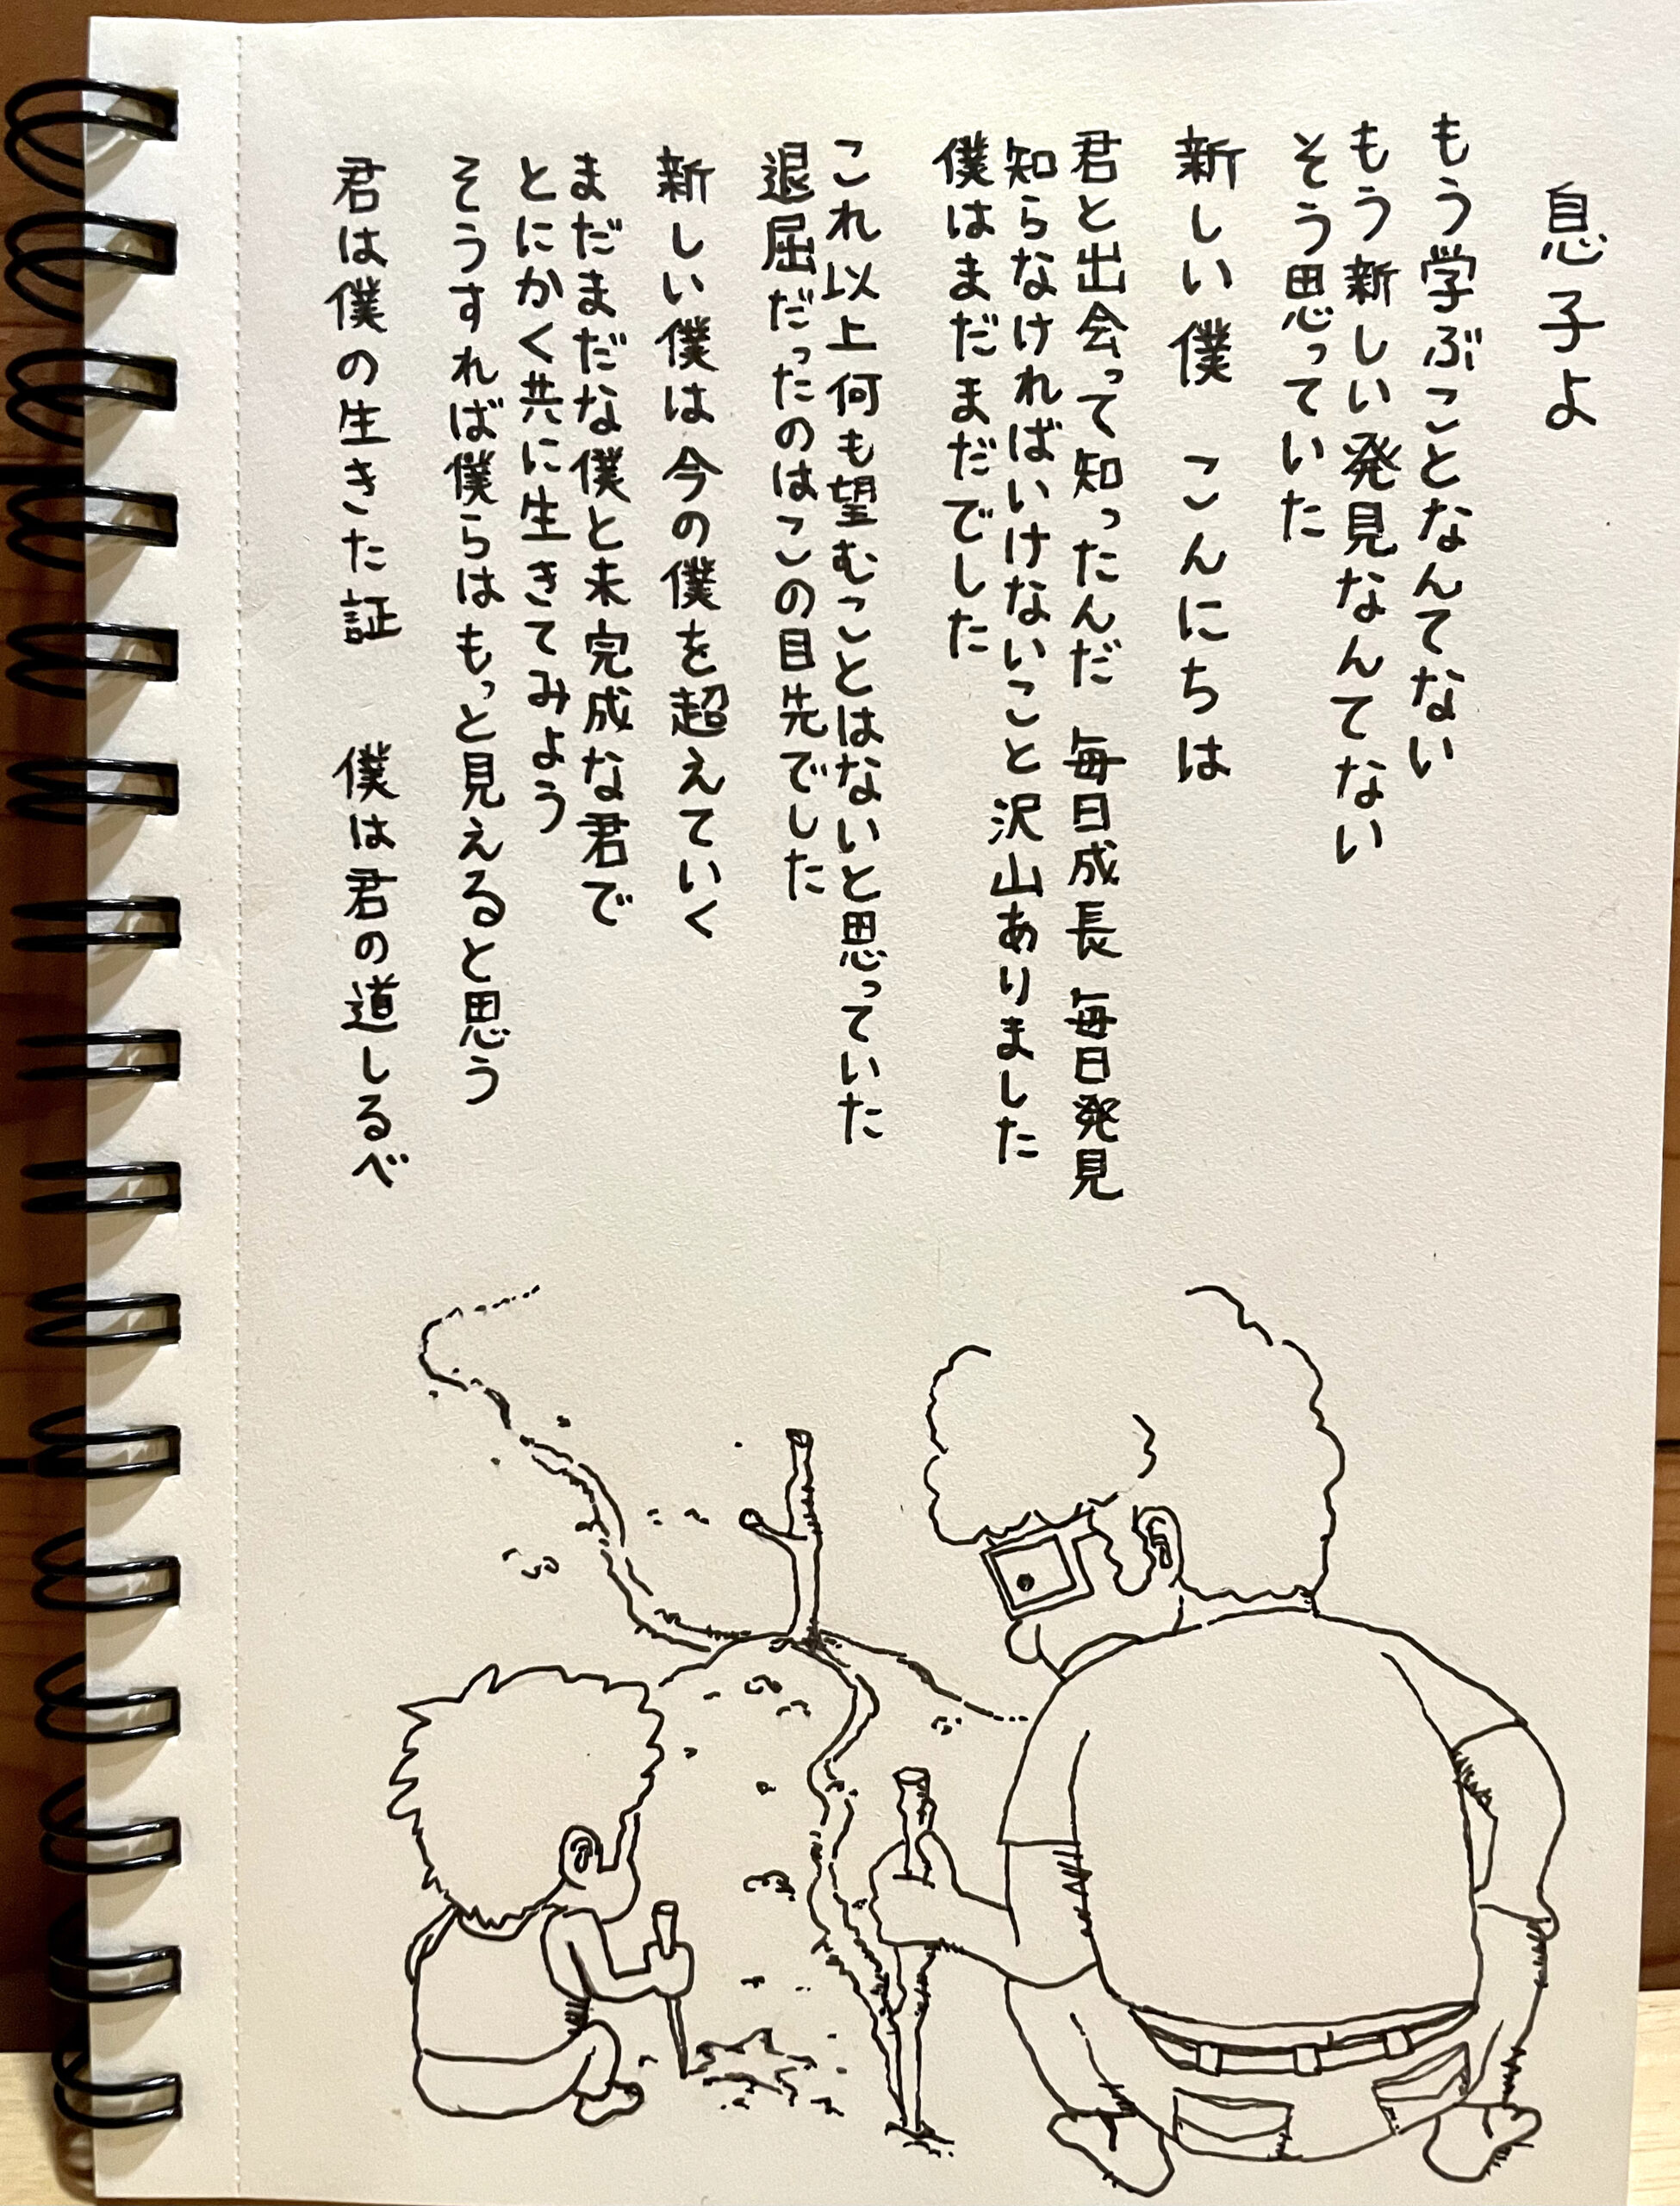 息子よ
もう学ぶことなんてない
もう新しい発見なんてない
そう思っていた
新しい僕 こんにちは
君と出会って知ったんだ 毎日成長 毎日発見
知らなければいけないこと沢山ありました
僕はまだまだでした
これ以上何も望むことはないと思っていた
退屈だったのはこの目先でした
新しい僕は今の僕を超えていく
まだまだな僕と未完成な君で
とにかく共に生きてみよう
そうすれば僕らはもっと見えると思う
君は僕の生きた証 僕は君の道しるべ